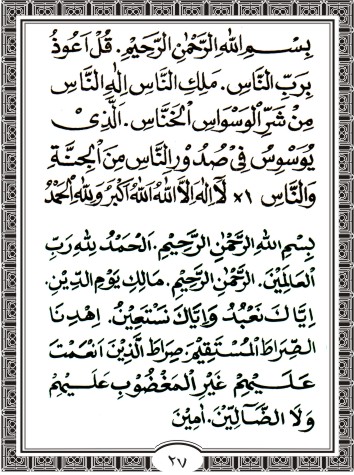 بِسْمِ اللهِ الرَّحْمٰنِ الرَّحِيْمِ. قُلْ اَعُوْذُ
بِرَبِّ النَّاسِ. مَلِكِ النَّاسِ اِلٰهِ النَّاسِ
مِنْ شَرِّ الْوَسْوَاسِ الْخَنَّاسِ. اَلَّذِىْ
يُوَسْوِسُ فِىْ صُدُوْرِ النَّاسِ مِنَ الْجِنَّةِ
وَالنَّاسِ ×١ لَآ اِلٰهَ اِلَّا اللهُ اَللهُ اَكْبَرُ وَلِلّٰهِ الْحَمْدُ
بِسْمِ اللهِ الرَّحْمٰنِ الرَّحِيْمِ. اَلْحَمْدُ لِلّٰهِ رَبِّ
الْعَالَمِيْنَ. الرَّحْمٰنِ الرَّحِيْمِ. مَالِكِ يَوْمِ الدِّيْنِ.
اِيَّاكَ نَعْبُدُ وَاِيَّاكَ نَسْتَعِيْنُ. اِهْدِنَا
الصِّرَاطَ الْمُسْتَقِيْمَ. صِرَاطَ الَّذِيْنَ اَنْعَمْتَ
عَلَيْهِمْ غَيْرِ الْمَغْضُوْبِ عَلَيْهِمْ
وَلَا الضَّآلِّيْنَ. اٰمِيْنَ
٢٧